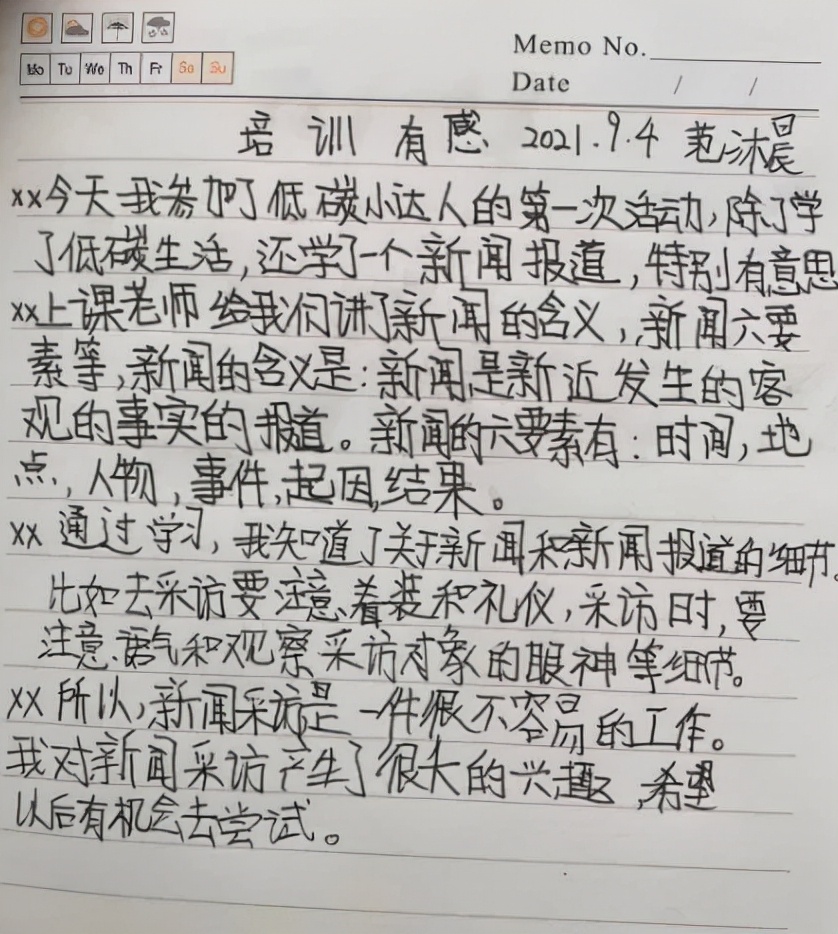 Memo No.
Mo Tu We Th Fr Sa Su
Date / /
培训有感 2021.9.4 范沐晨
xx今天我参加了低碳小达人的第一次活动,除了学
了低碳生活,还学了一个新闻报道,特别有意思
xx上课老师给我们讲了新闻的含义,新闻六要
素等,新闻的含义是:新闻是新近发生的客
观的事实的报道。新闻的六要素有:时间,地
点,人物,事件,起因,结果。
xx通过学习,我知道了关于新闻和新闻报道的细节。
比如去采访要注意着装和礼仪,采访时,要
注意语气和观察采访对象的眼神等细节。
xx所以,新闻采访是一件很不容易的工作。
我对新闻采访产生了很大的兴趣,希望
以后有机会去尝试。